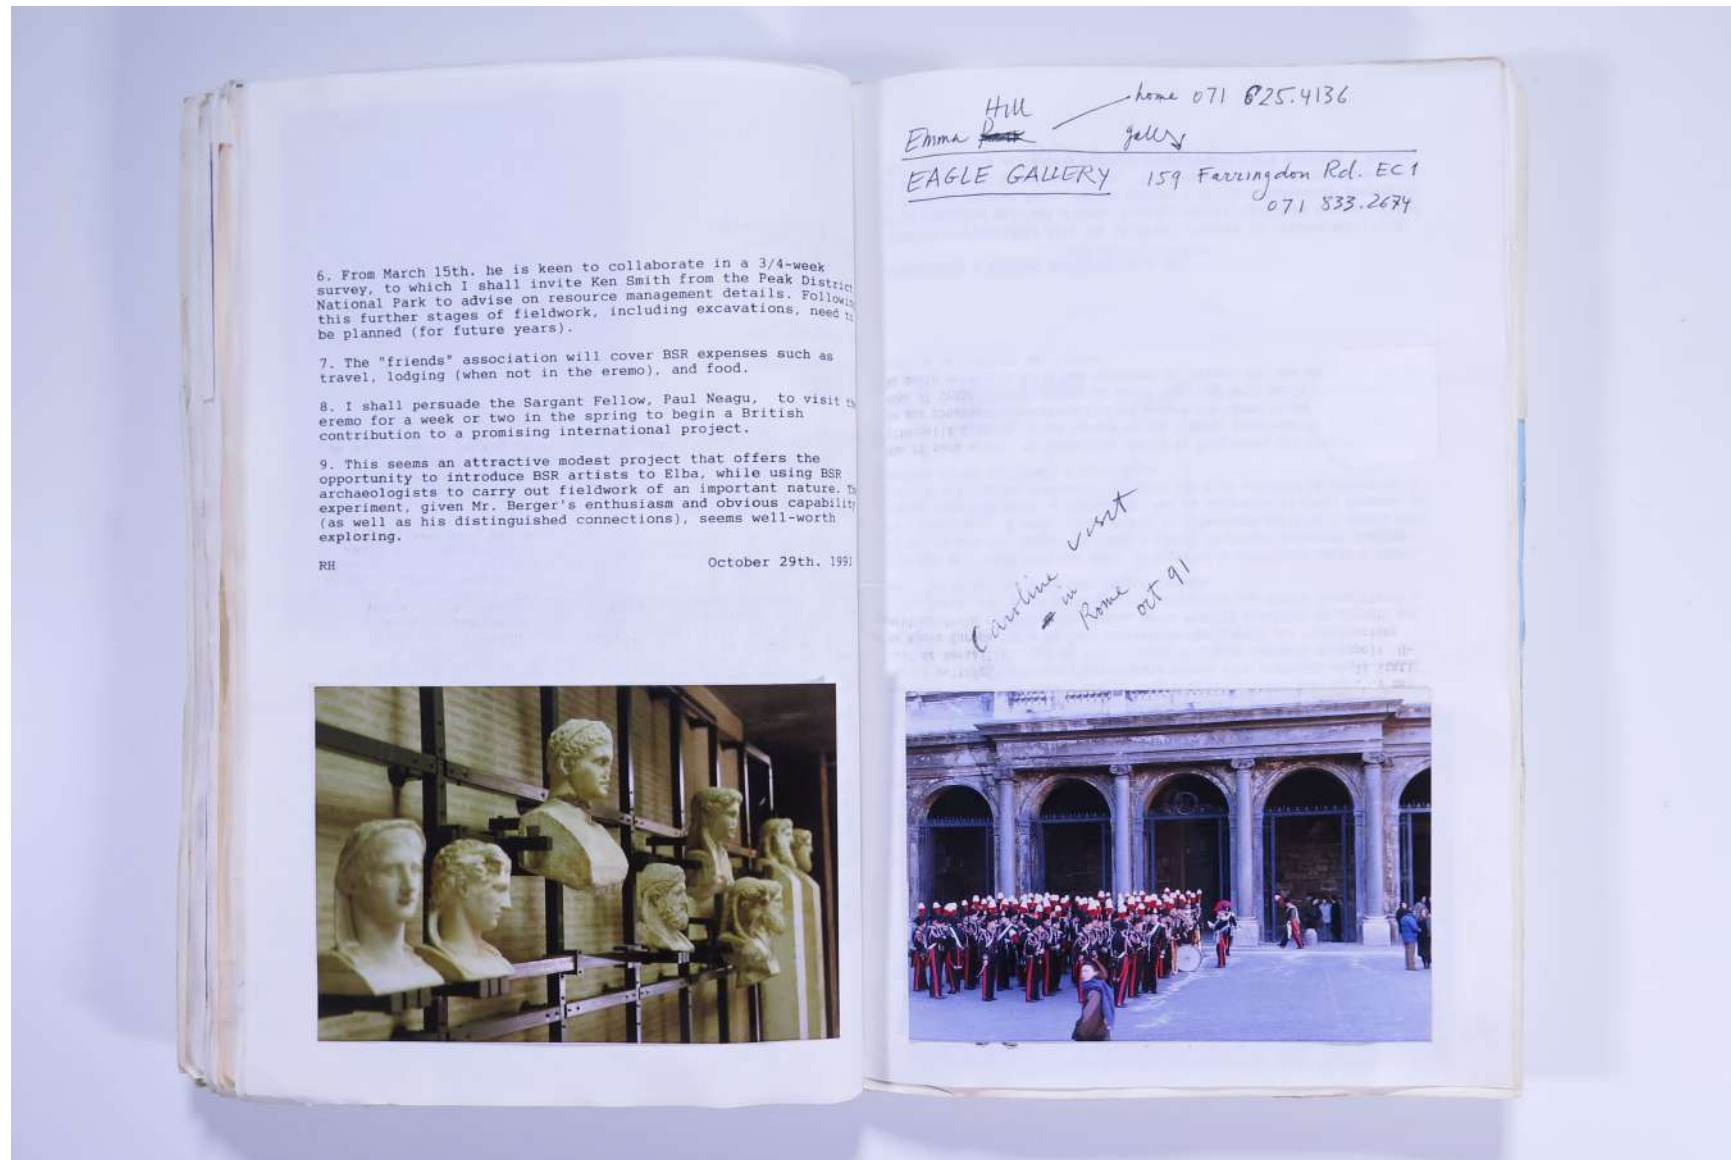 6. From March 15th. he is keen to collaborate in a 3/4-week
survey, to which I shall invite Ken Smith from the Peak District
National Park to advise on resource management details. Followin
this further stages of fieldwork, including excavations, need to
be planned (for future years).
7. The "friends" association will cover BSR expenses such as
travel, lodging (when not in the eremo), and food.
8. I shall persuade the Sargant Fellow, Paul Neagu, to visit th
eremo for a week or two in the spring to begin a British
contribution to a promising international project.
9. This seems an attractive modest project that offers the
opportunity to introduce BSR artists to Elba, while using BSR
archaeologists to carry out fieldwork of an important nature. Th
experiment, given Mr. Berger's enthusiasm and obvious capability
(as well as his distinguished connections), seems well-worth
exploring.
RH October 29th. 1991
Hill
Emma home 071 625.4136
gallery
EAGLE GALLERY 159 Farringdon Rd. EC1
071 833.2674
Caroline visit
in
Rome oct 91